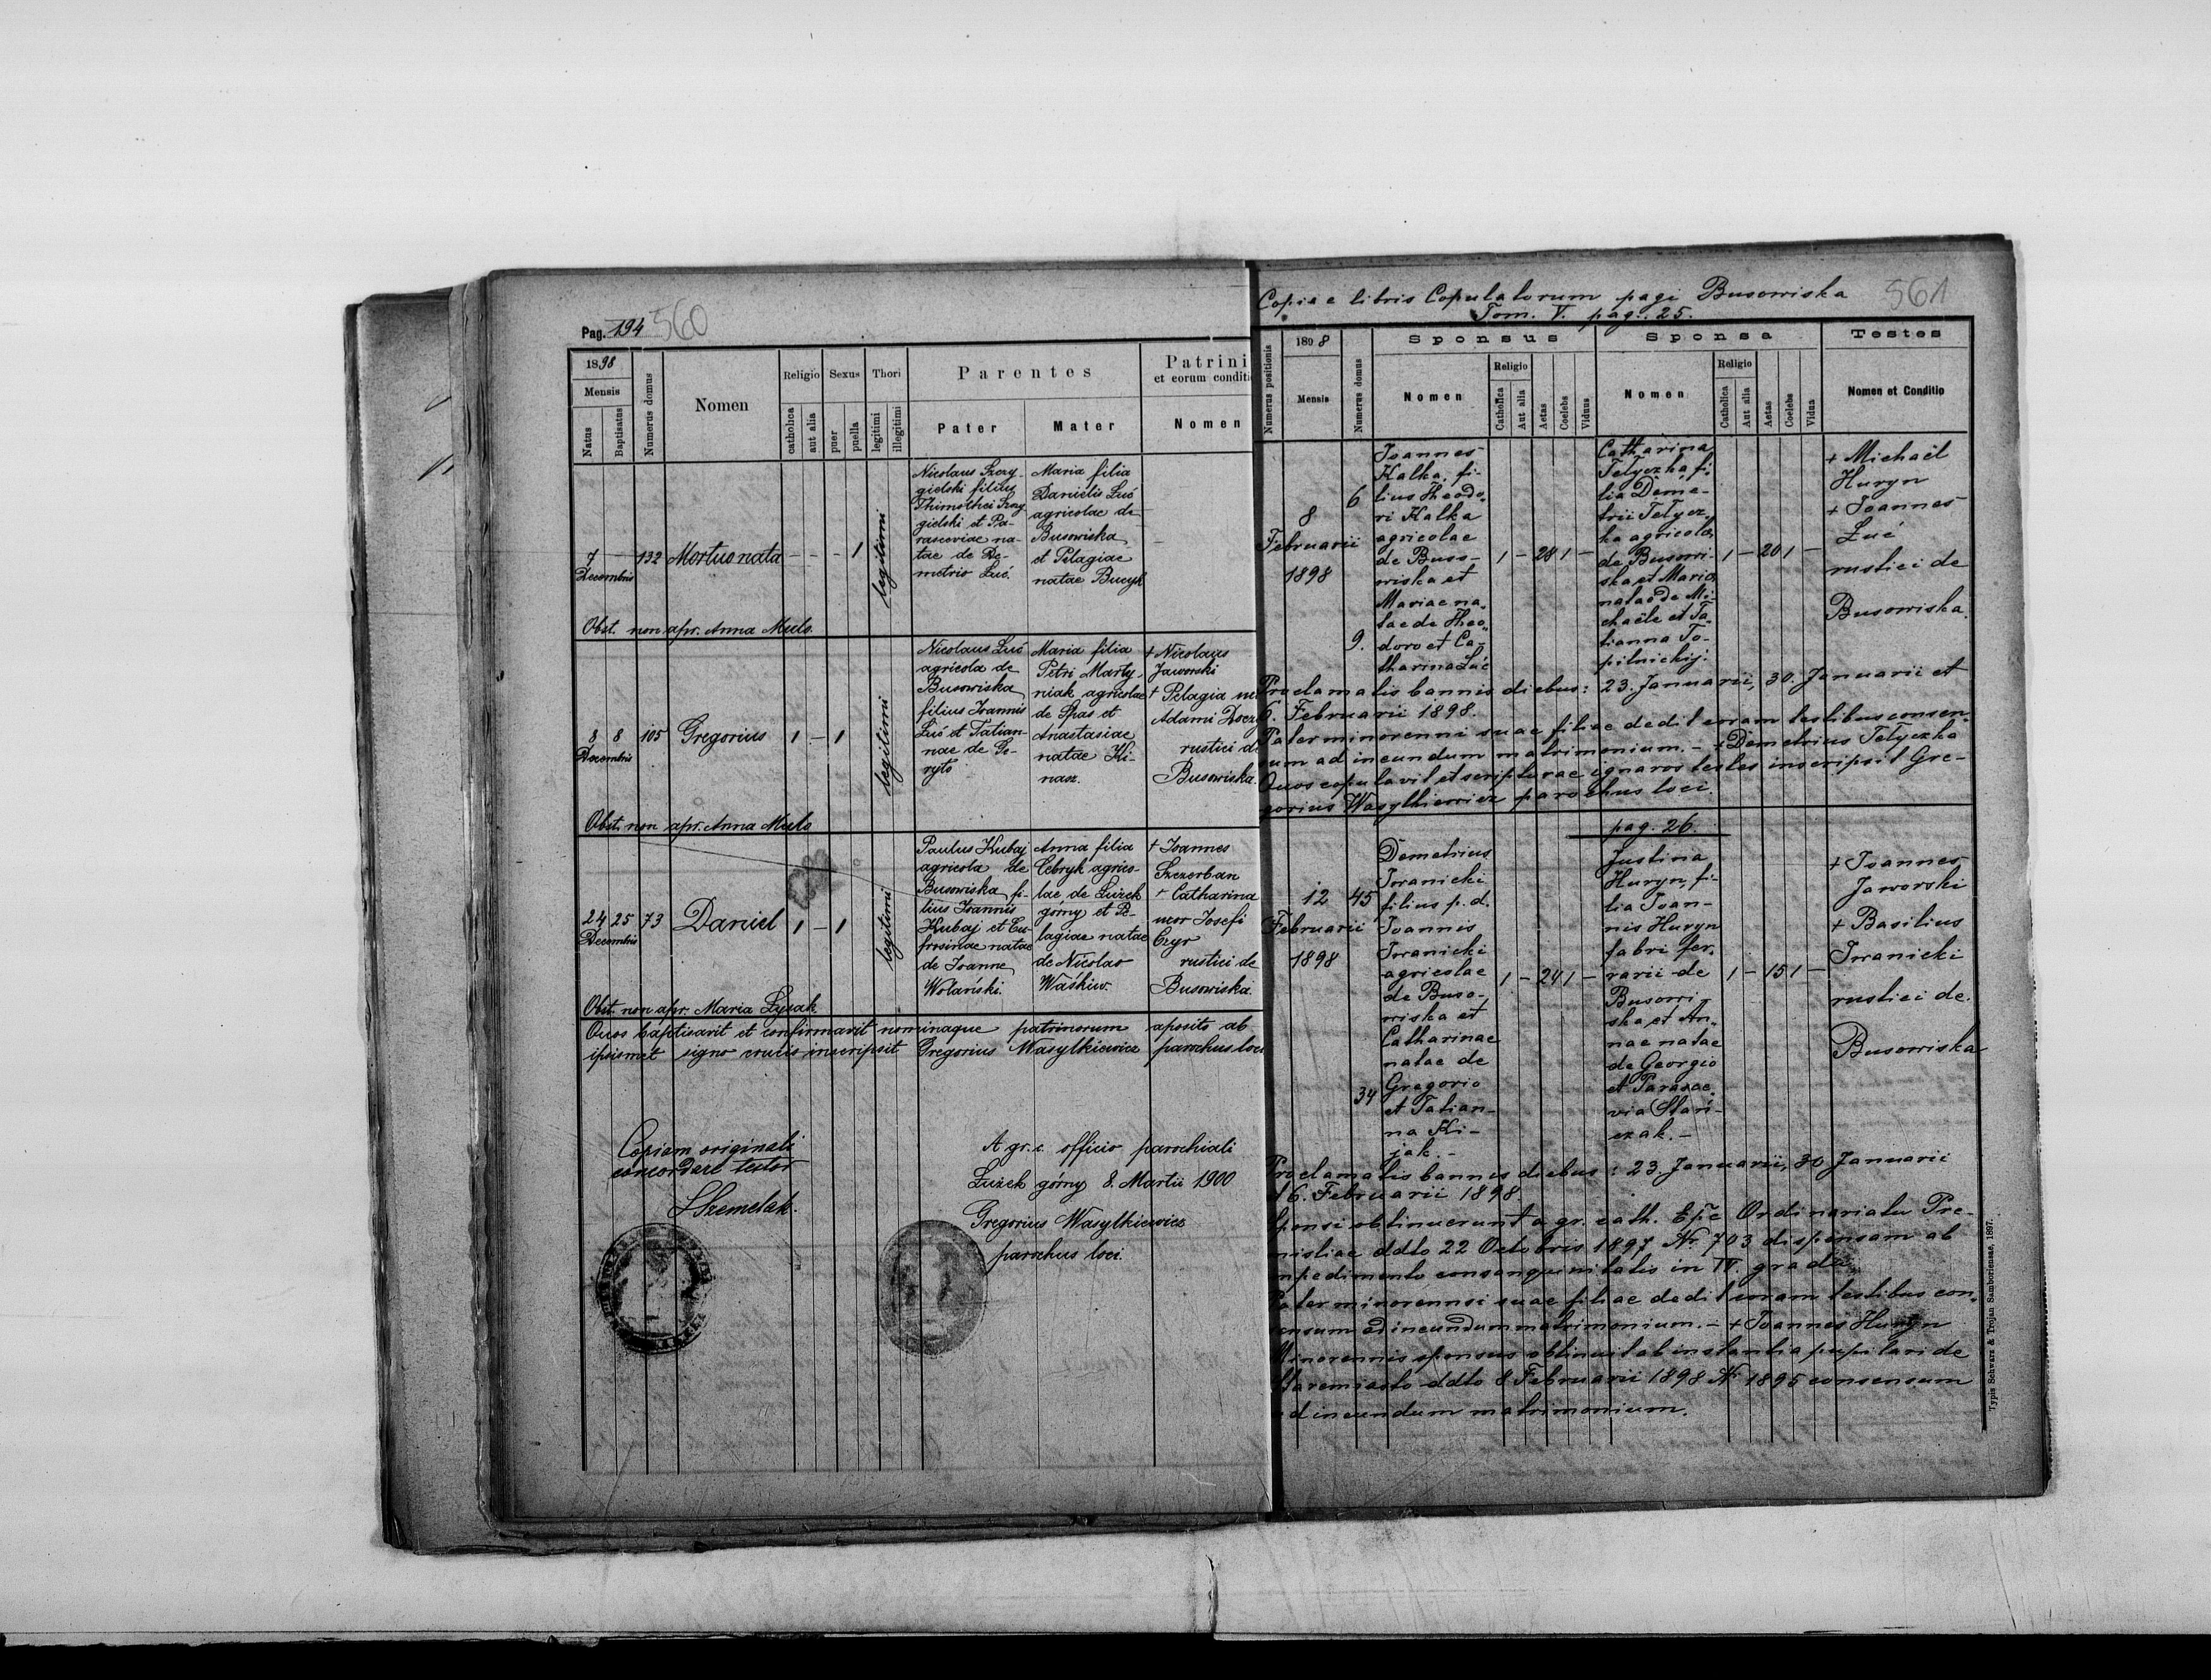 Pag. 194 560
1898
Mensis
Natus
Baptisatus
Numerus domus
Nomen
Religio
catholica
aut alia
Sexus
puer
puella
Thori
legitimi
illegitimi
Parentes
Pater
Mater
Patrini
et eorum conditi
Nomen
7
Decembris
132
Mortuo nata
- - - 1
legitimi
Nicolaus Szczy-
gielski filius
Thimothei Szczy
gielski et Pa-
rasceviae na-
tae de De-
metrio Luć.
Maria filia
Danielis Luć
agricolae de
Busowiska
et Pelagiae
natae Bucyk
Obst. non apr. Anna Mulo
8 8
Decembris
105
Gregorius
1 - 1
legitimi
Nicolaus Luć
agricola de
Busowiska
filius Joannis
Luć et Tatian-
nae de Go-
ryto
Maria filia
Petri Marty-
niak agricolae
de Spas et
Anastasiae
natae Ki-
nasz.
+ Nicolaus
Jaworski
+ Pelagia
Adami
rustici de
Busowiska.
Obst. non apr. Anna Mulo
24 25
Decembris
73
Daniel
1 - 1
legitimi
Paulus Kubaj
agricola de
Busowiska fi-
lius Joannis
Kubaj et Eu-
frosinae natae
de Joanne
Wolański.
Anna filia
Cebryk agrico-
lae de Łużek
górny et Pe-
lagiae natae
de Nicolao
Waśkiw.
+ Joannes
Szczerban
+ Catharina
uxor Josefi
Czyr
rustici de
Busowiska.
Obst. non apr. Maria Łysak
Quos baptisavit et confirmavit nominaque patrinorum aposito ab
ipsismet signo crucis inscripsit Gregorius Wasylkiewicz parochus loci
Copiam originali
concordare testor
A gr. c. officio parochiali
Łużek górny 8. Martii 1900
Gregorius Wasylkiewicz
parochus loci
Copia e libris Copulatorum pagi Busowiska 561
Tom. V. pag. 25.
Numerus positionis
1898
Mensis
Numerus domus
Sponsus
Nomen
Religio
Catholica
Aut alia
Aetas
Coelebs
Viduus
Sponsa
Nomen
Religio
Catholica
Aut alia
Aetas
Coelebs
Vidua
Testes
Nomen et Conditio
8
Februarii
1898
6
9.
Joannes
Kalka, fi-
lius Theodo-
ri Kalka
agricolae
de Buso-
wiska et
Mariae na-
tae de Theo-
doro et Ca-
tharina Luć
1 - 28 1 -
Catharina
Telyczka fi
lia Deme-
trii Telycz-
ka agricolae
de Busowi-
ska et Maria
natae de Mi-
chaële et Ta-
tianna To-
pilnickij.
1 - 20 1 -
+ Michaël
Huryn
+ Joannes
Luć
rustici de
Busowiska.
Proclamatis bannis diebus: 23. Januarii, 30. Januarii et
6. Februarii 1898.
Pater minorenni suae filiae dedit coram testibus consen-
sum ad ineundum matrimonium. - + Demetrius Telyczka
Quos copulavit et scripturae ignaros testes inscripsit Gre-
gorius Wasylkiewicz parochus loci.
pag. 26.
12
Februarii
1898
45
34
Demetrius
Iwanicki
filius p. d.
Joannis
Iwanicki
agricolae
de Buso-
wiska et
Catharinae
natae de
Gregorio
et Tatian-
na Ki-
jak. -
1 - 24 1 -
Justina
Huryn fi-
lia Joan-
nis Huryn
fabri fer-
rarii de
Busowi-
ska et An-
nae natae
de Georgio
et Parasce-
via Stań-
czak. -
1 - 15 1 -
+ Joannes
Jaworski
+ Basilius
Iwanicki
rustici de
Busowiska
Proclamatis bannis diebus: 23. Januarii, 30 Januarii
et 6. Februarii 1898
Sponsi obtinuerunt a gr. cath. Ordinariatu Pre-
misliae ddto 22 Octobris 1897 Nr 703 dispensam ab
impedimento consanquinitatis in IV. gradu.
Pater minorenni suae filiae dedit coram testibus con-
sensum ad ineundum matrimonium. - + Joannes Huryn
Minorennis sponsus obtinuit ab instantia pupilari de
Staremiasto ddto 8 Februarii 1898 Nr 1895 consensum
ad ineundum matrimonium.
Typis Schwarz & Trojan Samboriensae, 1897.